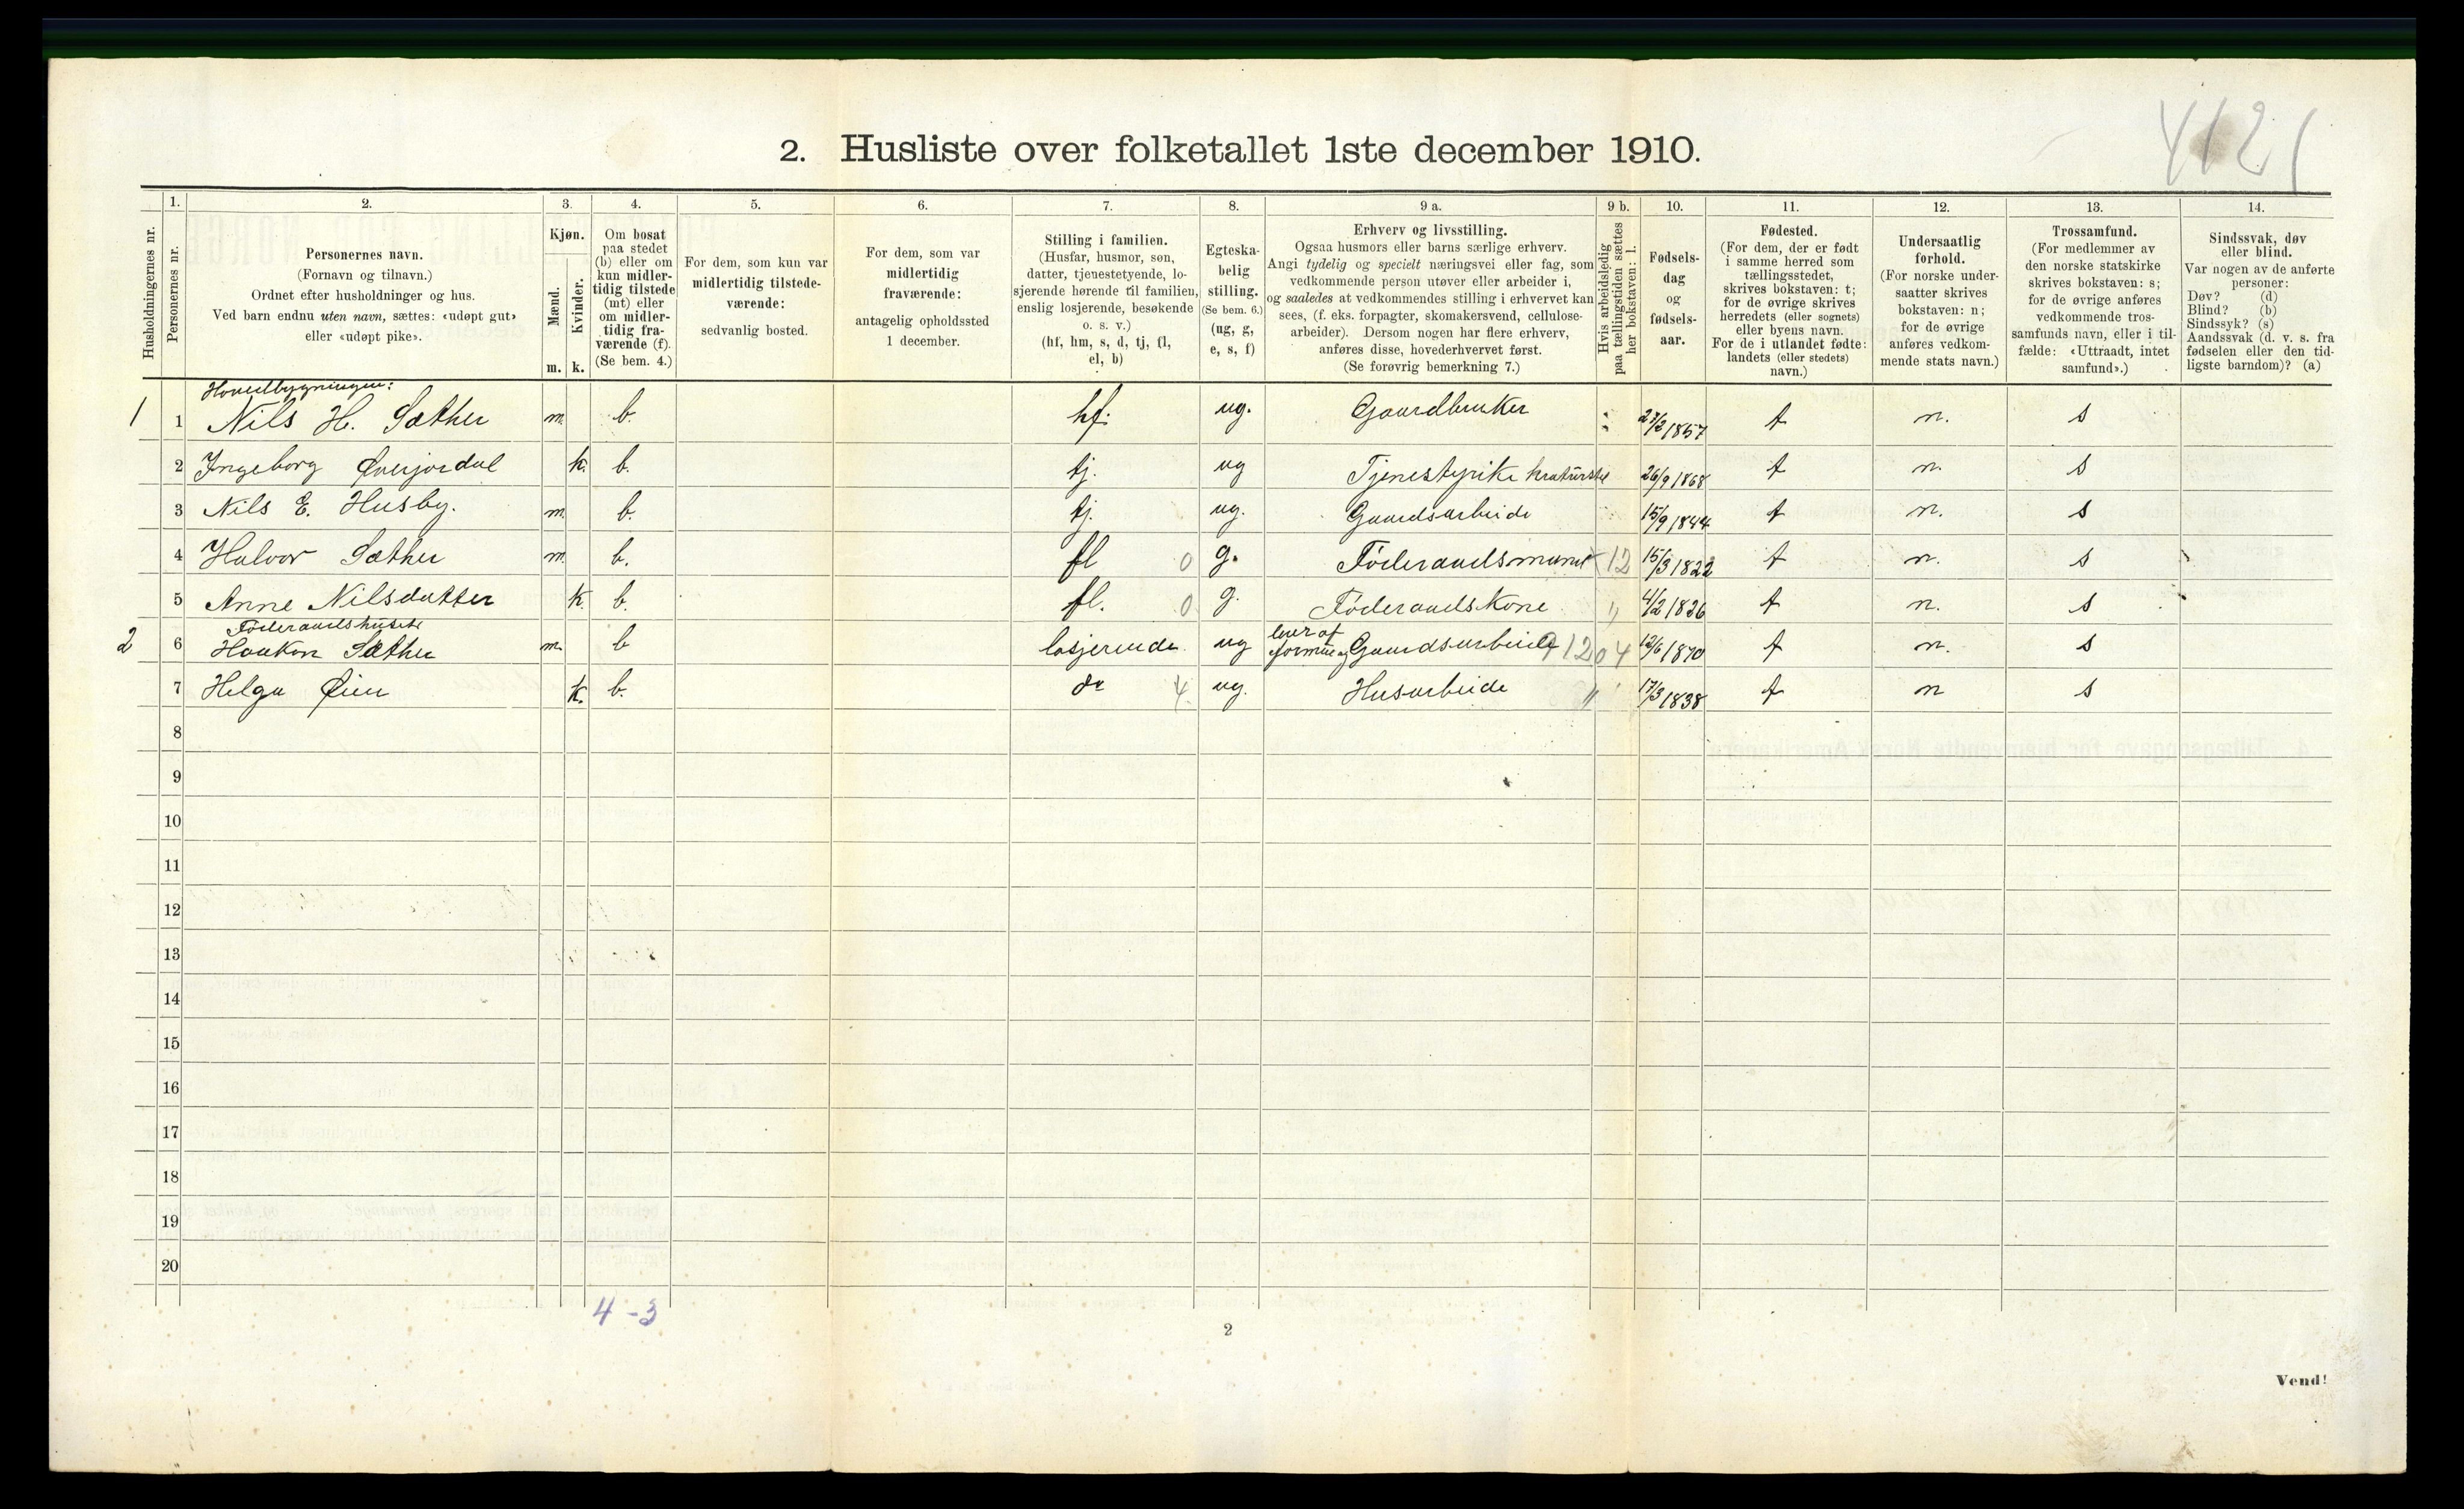 4121
2. Husliste over folketallet 1ste december 1910.
Husholdningernes nr.
1.
Personernes nr.
2.
Personernes navn.
(Fornavn og tilnavn.)
Ordnet efter husholdninger og hus.
Ved barn endnu uten navn, sættes: «udøpt gut»
eller «udøpt pike».
3.
Kjøn.
Mænd.
Kvinder.
m. k.
4.
Om bosat
paa stedet
(b) eller om
kun midler-
tidig tilstede
(mt) eller
om midler-
tidig fra-
værende (f).
(Se bem. 4.)
5.
For dem, som kun var
midlertidig tilstede-
værende:
sedvanlig bosted.
6.
For dem, som var
midlertidig
fraværende:
antagelig opholdssted
1 december.
7.
Stilling i familien.
(Husfar, husmor, søn,
datter, tjenestetyende, lo-
sjerende hørende til familien,
enslig losjerende, besøkende
o. s. v.)
(hf, hm, s, d, tj, fl,
el, b)
8.
Egteska-
belig
stilling.
(Se bem. 6.)
(ug, g,
e, s, f)
9 a.
Erhverv og livsstilling.
Ogsaa husmors eller barns særlige erhverv.
Angi tydelig og specielt næringsvei eller fag, som
vedkommende person utøver eller arbeider i,
og saaledes at vedkommendes stilling i erhvervet kan
sees, (f. eks. forpagter, skomakersvend, cellulose-
arbeider). Dersom nogen har flere erhverv,
anføres disse, hovederhvervet først.
(Se forøvrig bemerkning 7.)
9 b.
Hvis arbeidsledig
paa tællingstiden sættes
her bokstaven: l.
10.
Fødsels-
dag
og
fødsels-
aar.
11.
Fødested.
(For dem, der er født
i samme herred som
tællingsstedet,
skrives bokstaven: t;
for de øvrige skrives
herredets (eller sognets)
eller byens navn.
For de i utlandet fødte:
landets (eller stedets)
navn.)
12.
Undersaatlig
forhold.
(For norske under-
saatter skrives
bokstaven: n;
for de øvrige
anføres vedkom-
mende stats navn.)
13.
Trossamfund.
(For medlemmer av
den norske statskirke
skrives bokstaven: s;
for de øvrige anføres
vedkommende tros-
samfunds navn, eller i til-
fælde: «Uttraadt, intet
samfund».)
14.
Sindssvak, døv
eller blind.
Var nogen av de anførte
personer:
Døv? (d)
Blind? (b)
Sindssyk? (s)
Aandssvak (d. v. s. fra
fødselen eller den tid-
ligste barndom)? (a)
Hovedbygningen:
1 1 Nils H. Sæther m. b. hf. ug. Gaardbruker 27/2 1857 t n. s
2 Ingeborg Øverjordal k. b. tj. ug Tjenestepike 26/9 1868 t n. s
3 Nils E. Husby. m. b. tj. ug. Gaardsarbeide 15/9 1844 t n. s
4 Halvor Sæther m. b. fl 0 g. Föderaadsmand 12 15/3 1822 t n. s
5 Anne Nilsdatter k. b. fl. 0 g. Föderaadskone " 4/2 1826 t n. s
Föderaadshuset
2 6 Haakon Sæther m. b losjerende ug lever af formue og Gaardsarbeide 912 04 12/6 1870 t n. s
7 Helga Øien k. b. do 4 ug. Husarbeide " 17/3 1838 t n s
8
9
10
11
12
13
14
15
16
17
18
19
20
4 - 3
2
Vend!